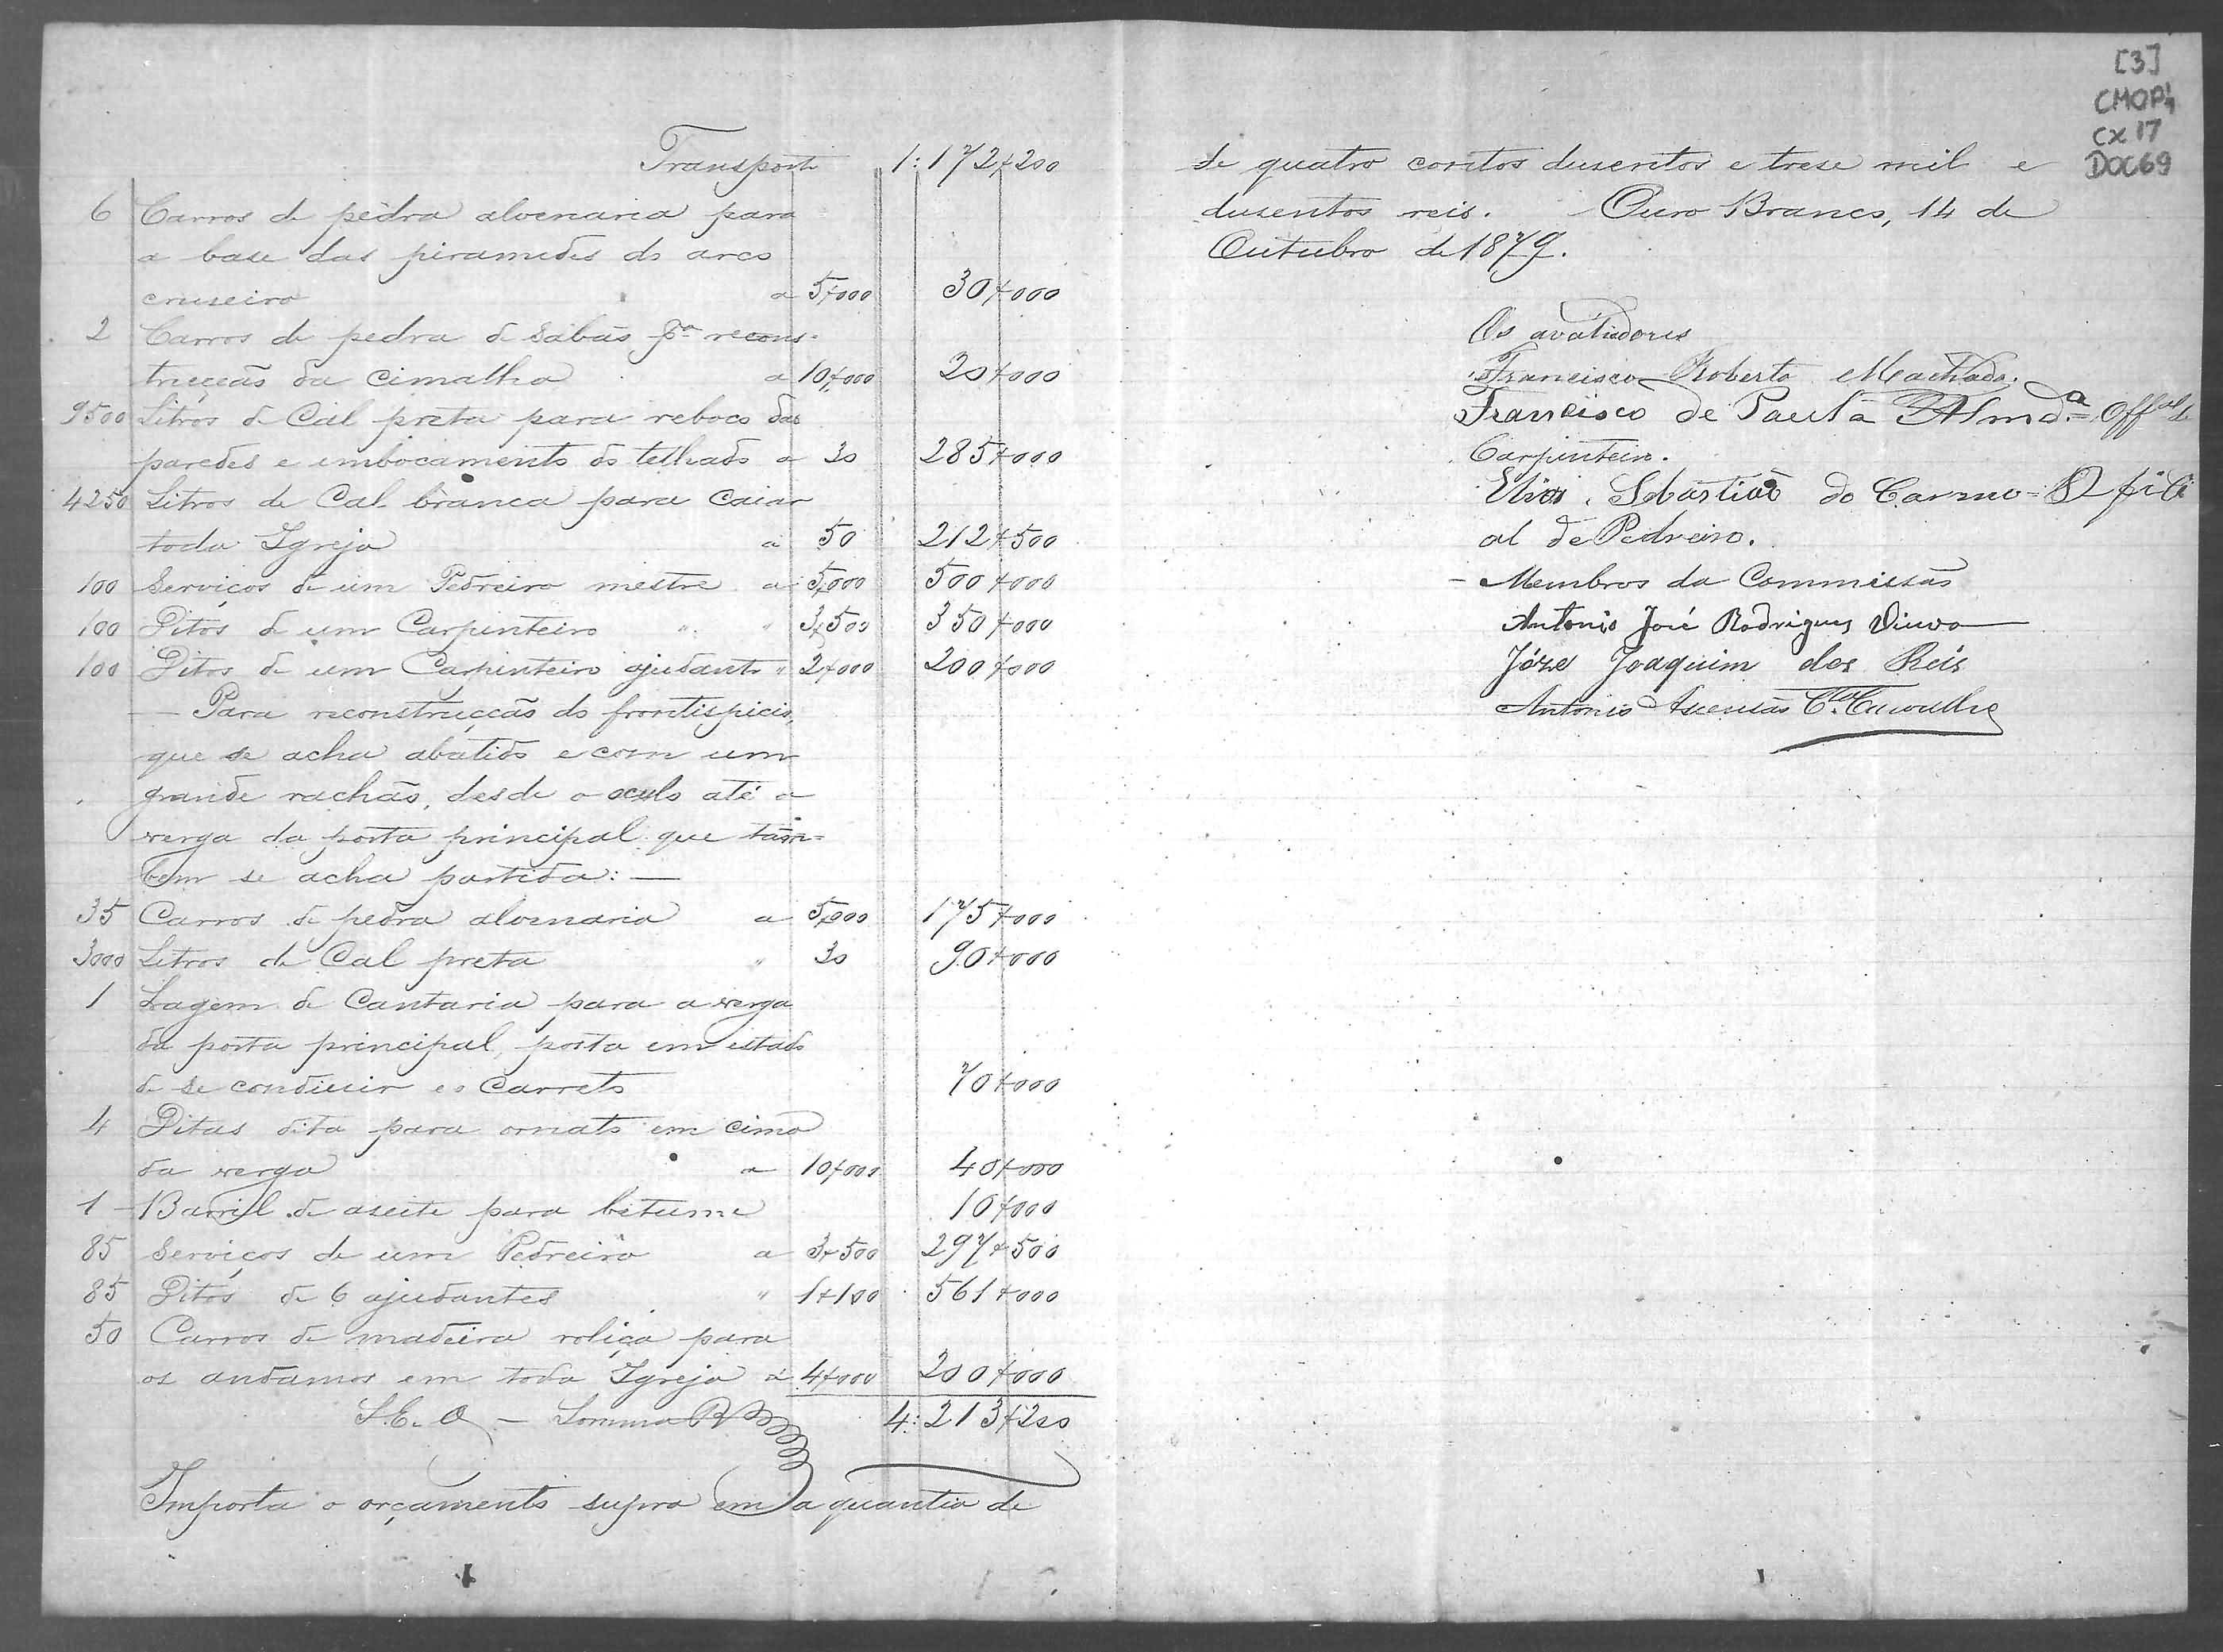 Transporte 1:172$200
6 Carros de pedra alvenaria para
a base das piramedes do arco
cruseiro a 5$000 30$000
2 Carros de pedra de Sabão pª recons-
trucçaõ da Cimalha a 10$000 20$000
9500 Litros de Cal preta para reboco das
paredes e embocamento do telhado a 30 285$000
4250 Litros de Cal branca para Caiar
toda Igreja a 50 212$500
100 Serviços de um Pedreiro mestre a 5$000 500$000
100 Ditos de um Carpinteiro " " 3$500 350$000
100 Ditos de um Carpinteiro ajudante " 2$000 200$000
— Para reconstrucçaõ do frontispicio,
que se acha abatido e com um
grande rachaõ, desde o oculo até a
verga da porta principal que tam=
bem se acha partida: —
35 Carros de pedra alvenaria a 5$000 175$000
3000 Litros de Cal preta " 30 90$000
1 Lagem de Cantaria para a verga
da porta principal, posta em estado
de se condusir e o Carreto 70$000
4 Ditas dita para ornato em cima
da verga a 10$000 40$000
1 — Barril de aseite para betume 10$000
85 Serviços de um Pedreiro a 3$500 297$500
85 Ditos de 6 ajudantes " 1$100 561$000
50 Carros de madeira roliça para
os andamos em toda Igreja a 4$000 200$000
S. E. O — Somma R 4:213$200
Importa o orçamento supra em a quantia de
de quatro contos dusentos e trese mil e
dusentos reis. Ouro Branco, 14 de
Outubro de 1879.
Os avaliadores
Francisco Roberto Machado.
Francisco de Paula Almdª Offal de
Carpinteiro.
Elias Sebastiaõ do Carmo = Ofici
al de Pedreiro.
— Membros da Commissaõ
Antonio José Rodrigues Viuva
Józe Joaquim dos Reis
Antonio Carvalho
[3]
CMOP
CX 17
DOC69